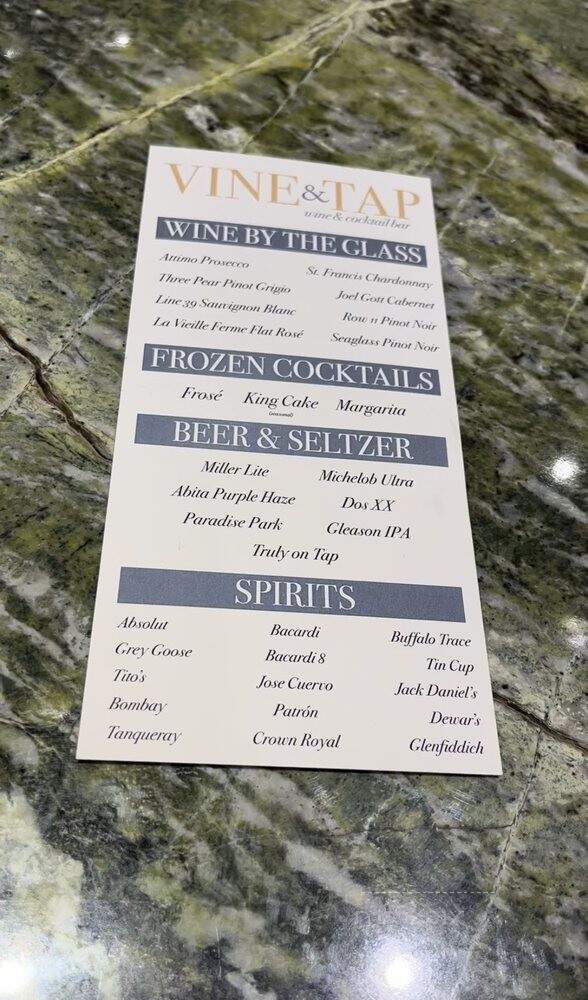 VINE & TAP
wine & cocktail bar
WINE BY THE GLASS
Attimo Prosecco St. Francis Chardonnay
Three Pear Pinot Grigio Joel Gott Cabernet
Line 39 Sauvignon Blanc Row 11 Pinot Noir
La Vieille Ferme Flat Rosé Seaglass Pinot Noir
FROZEN COCKTAILS
Frosé King Cake Margarita
(seasonal)
BEER & SELTZER
Miller Lite Michelob Ultra
Abita Purple Haze Dos XX
Paradise Park Gleason IPA
Truly on Tap
SPIRITS
Absolut Bacardi Buffalo Trace
Grey Goose Bacardi 8 Tin Cup
Tito's Jose Cuervo Jack Daniel's
Bombay Patrón Dewar's
Tanqueray Crown Royal Glenfiddich